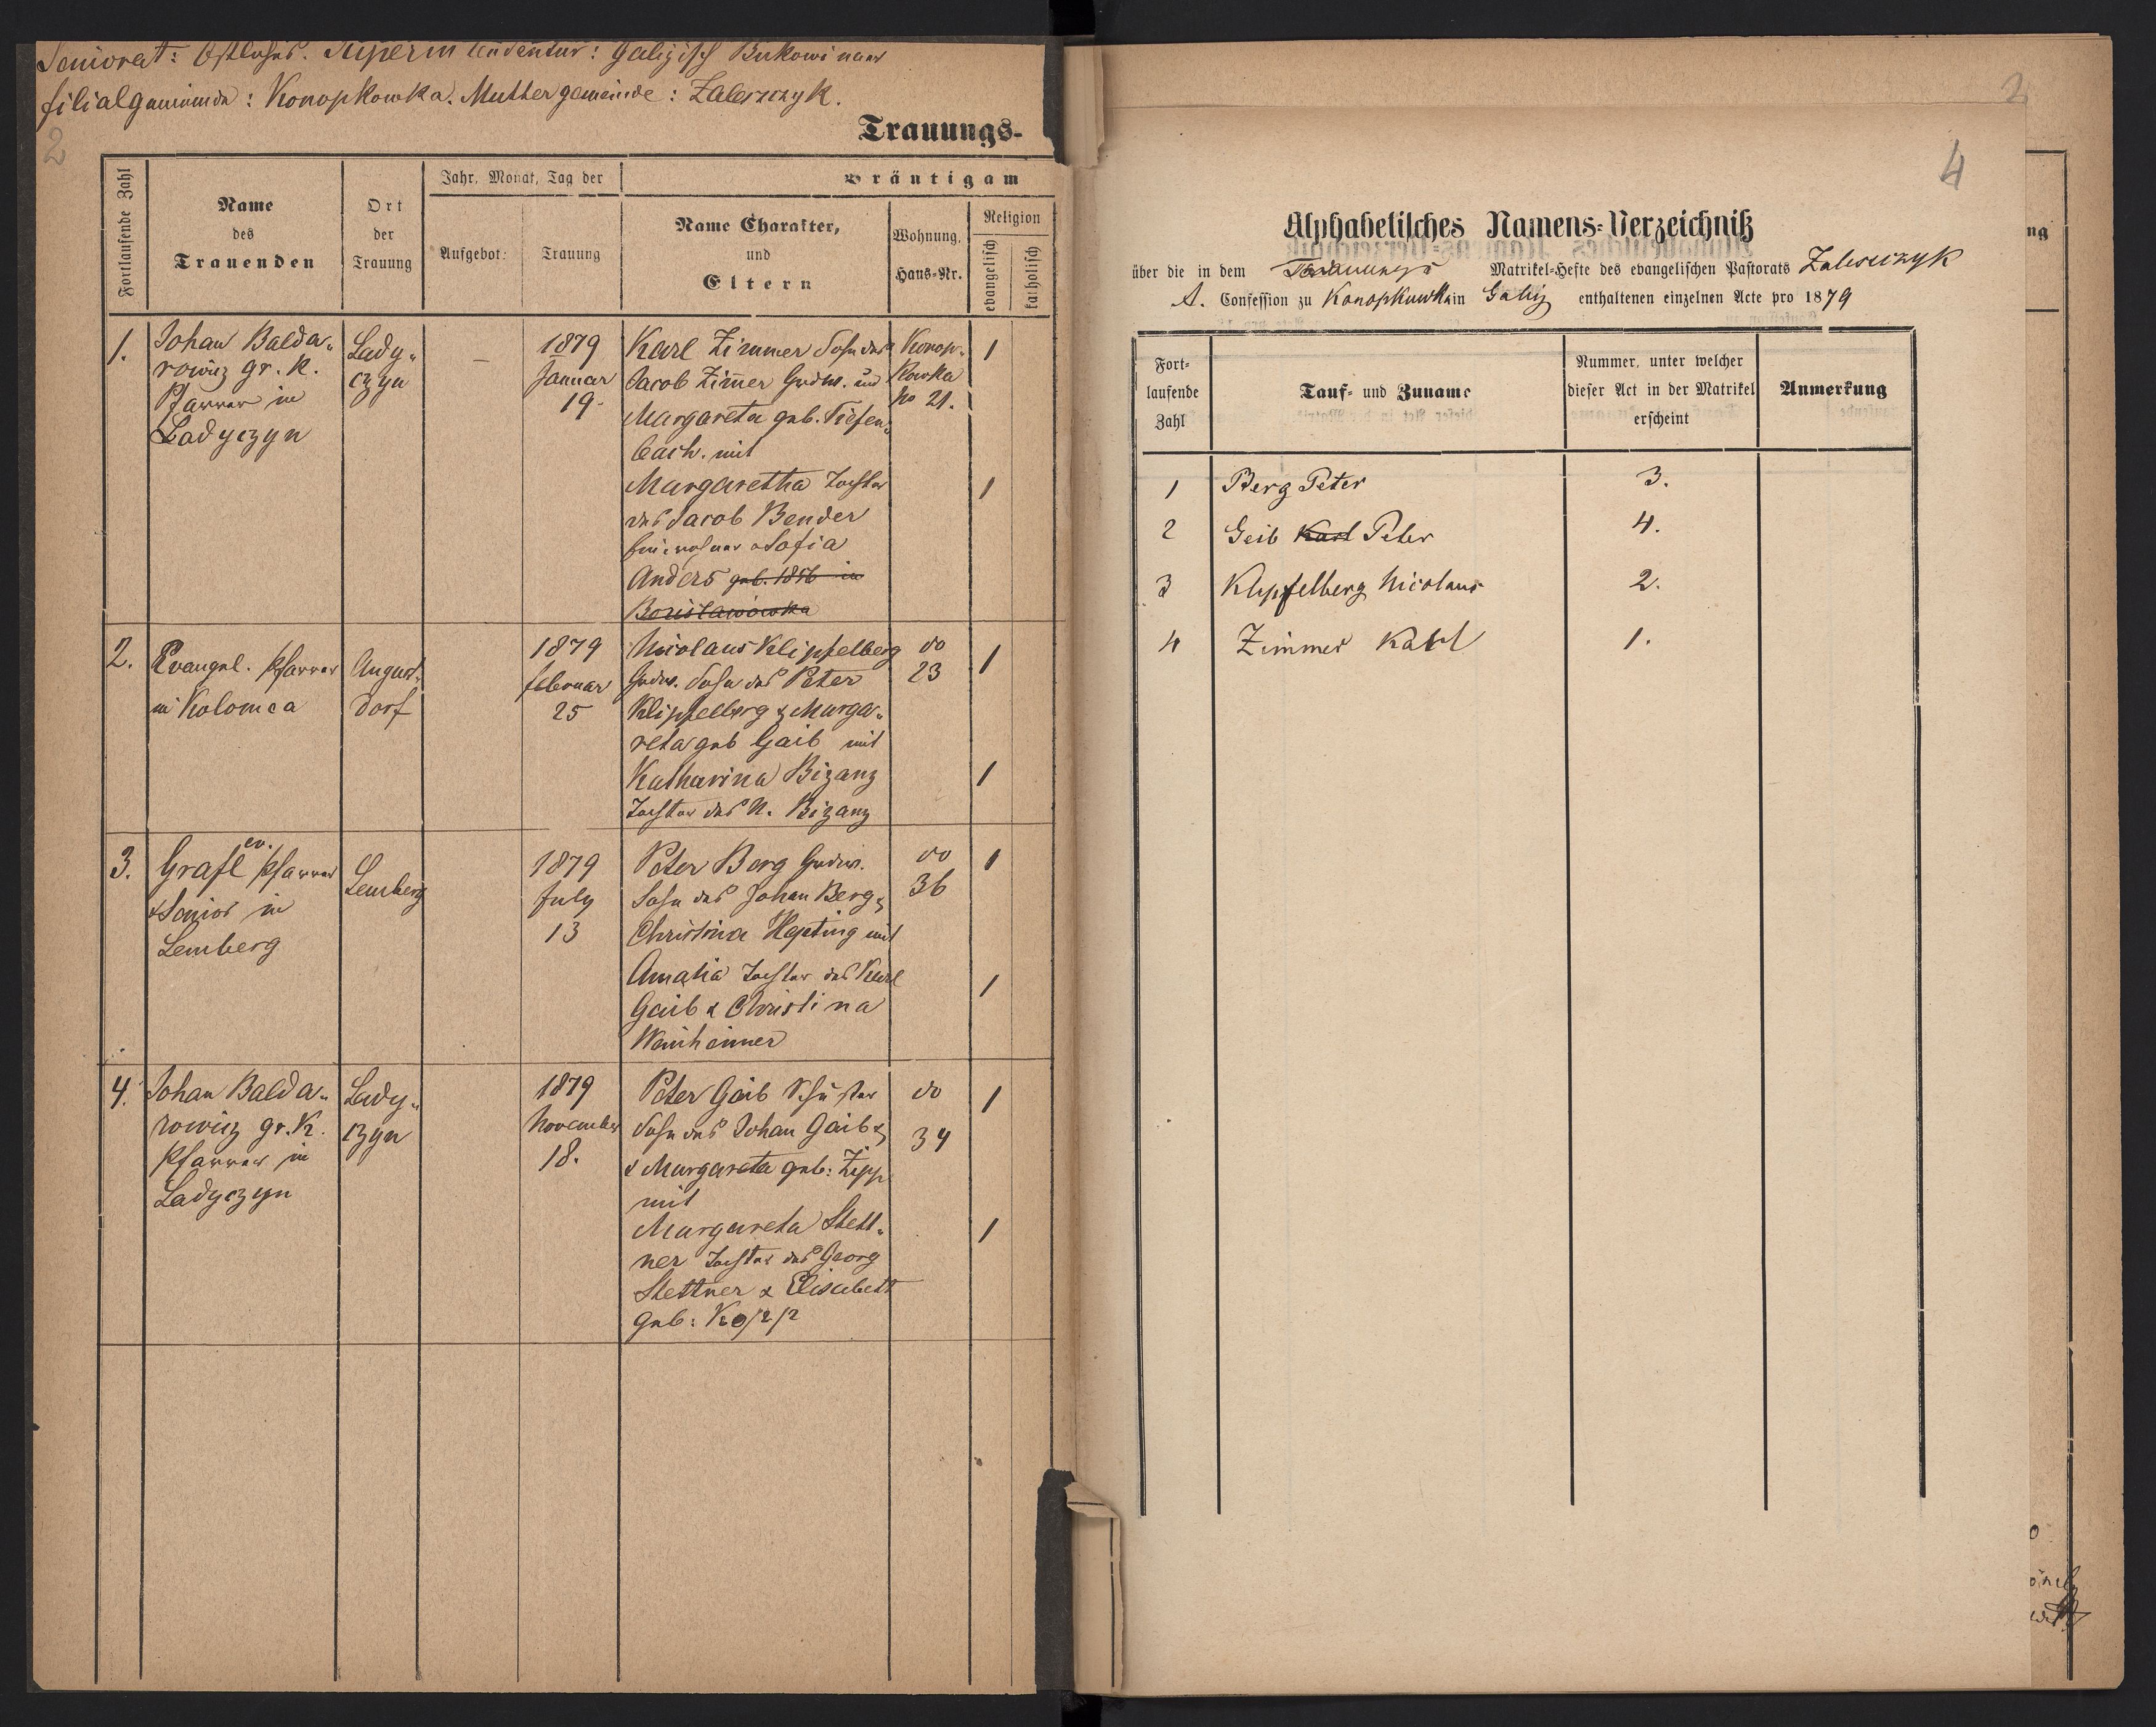 Seniorat: Östliches. Superintendentur: Galizisch Bukowinaer
Filialgemeinde: Konopkowka. Muttergemeinde: Zaleszczyk.
2
Trauungs-
Fortlaufende Zahl
Name
des
Trauenden
Ort
der
Trauung
Jahr, Monat, Tag der
Aufgebot:
Trauung
Bräutigam
Name Charakter,
und
Eltern
Wohnung,
Haus-Nr.
Religion
evangelisch
katholisch
1.
Johan Balda„
rowicz gr. K.
Pfarrer in
Ladyczyn
Lady„
czyn
—
1879
Januar
19.
Karl Zimmer Sohn des
Jacob Zim̄er Grdw. und
Margareta geb. Tiefen„
bach. mit
Margaretha Tochter
des Jacob Bender
Einwohner & Sofia
Anders geb. 1856 in
Borislawowka
Konop„
kowka
No 21.
1
1
2.
Evangel. Pfarrer
in Kolomea
August„
dorf
1879
februar
25
Nicolaus Klipfelberg
Grdw. Sohn des Peter
Klipfelberg & Marga„
reta geb Gaib mit
Katharina Bizanz
Tochter des N. Bizanz
do
23
1
1
3.
ev.
Grafl Pfarrer
& Senior in
Lemberg
Lemberg
1879
July
13
Peter Berg Grdw.
Sohn des Johan Berg &
Christina Hepting mit
Amalia Tochter des Karl
Gaib & Christina
Wanheimer
do
36
1
1
4.
Johan Balda„
rowicz gr. K.
Pfarrer in
Ladyczyn
Lady„
czyn
1879
November
18.
Peter Gaib Schuster
Sohn des Johan Gaib &
& Margareta geb: Zipp
mit
Margareta Stett„
ner Tochter des Georg
Stettner & Elisabett
geb: Kopp
do
34
1
1
2
4
Alphabetisches Namens-Verzeichniß
über die in dem Trauungs Matrikel-Hefte des evangelischen Pastorats Zaleszczyk
A. Confession zu Konopkuwka in Galiz enthaltenen einzelnen Acte pro 1879
Fort-
laufende
Zahl
Tauf- und Zuname
Nummer, unter welcher
dieser Act in der Matrikel
erscheint
Anmerkung
1 Berg Peter 3.
2 Geib Karl Peter 4.
3 Klipfelberg Nicolaus 2.
4 Zimmer Karl 1.
ng